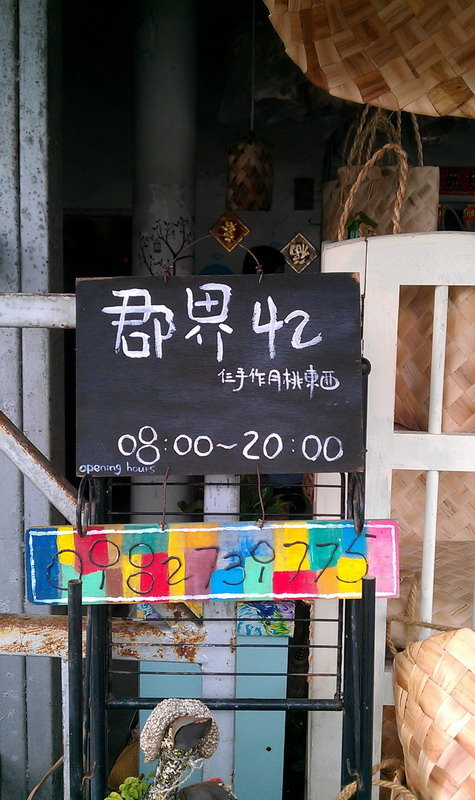 郡界42
仨手作月桃東西
08:00~20:00
opening hours
0982739775